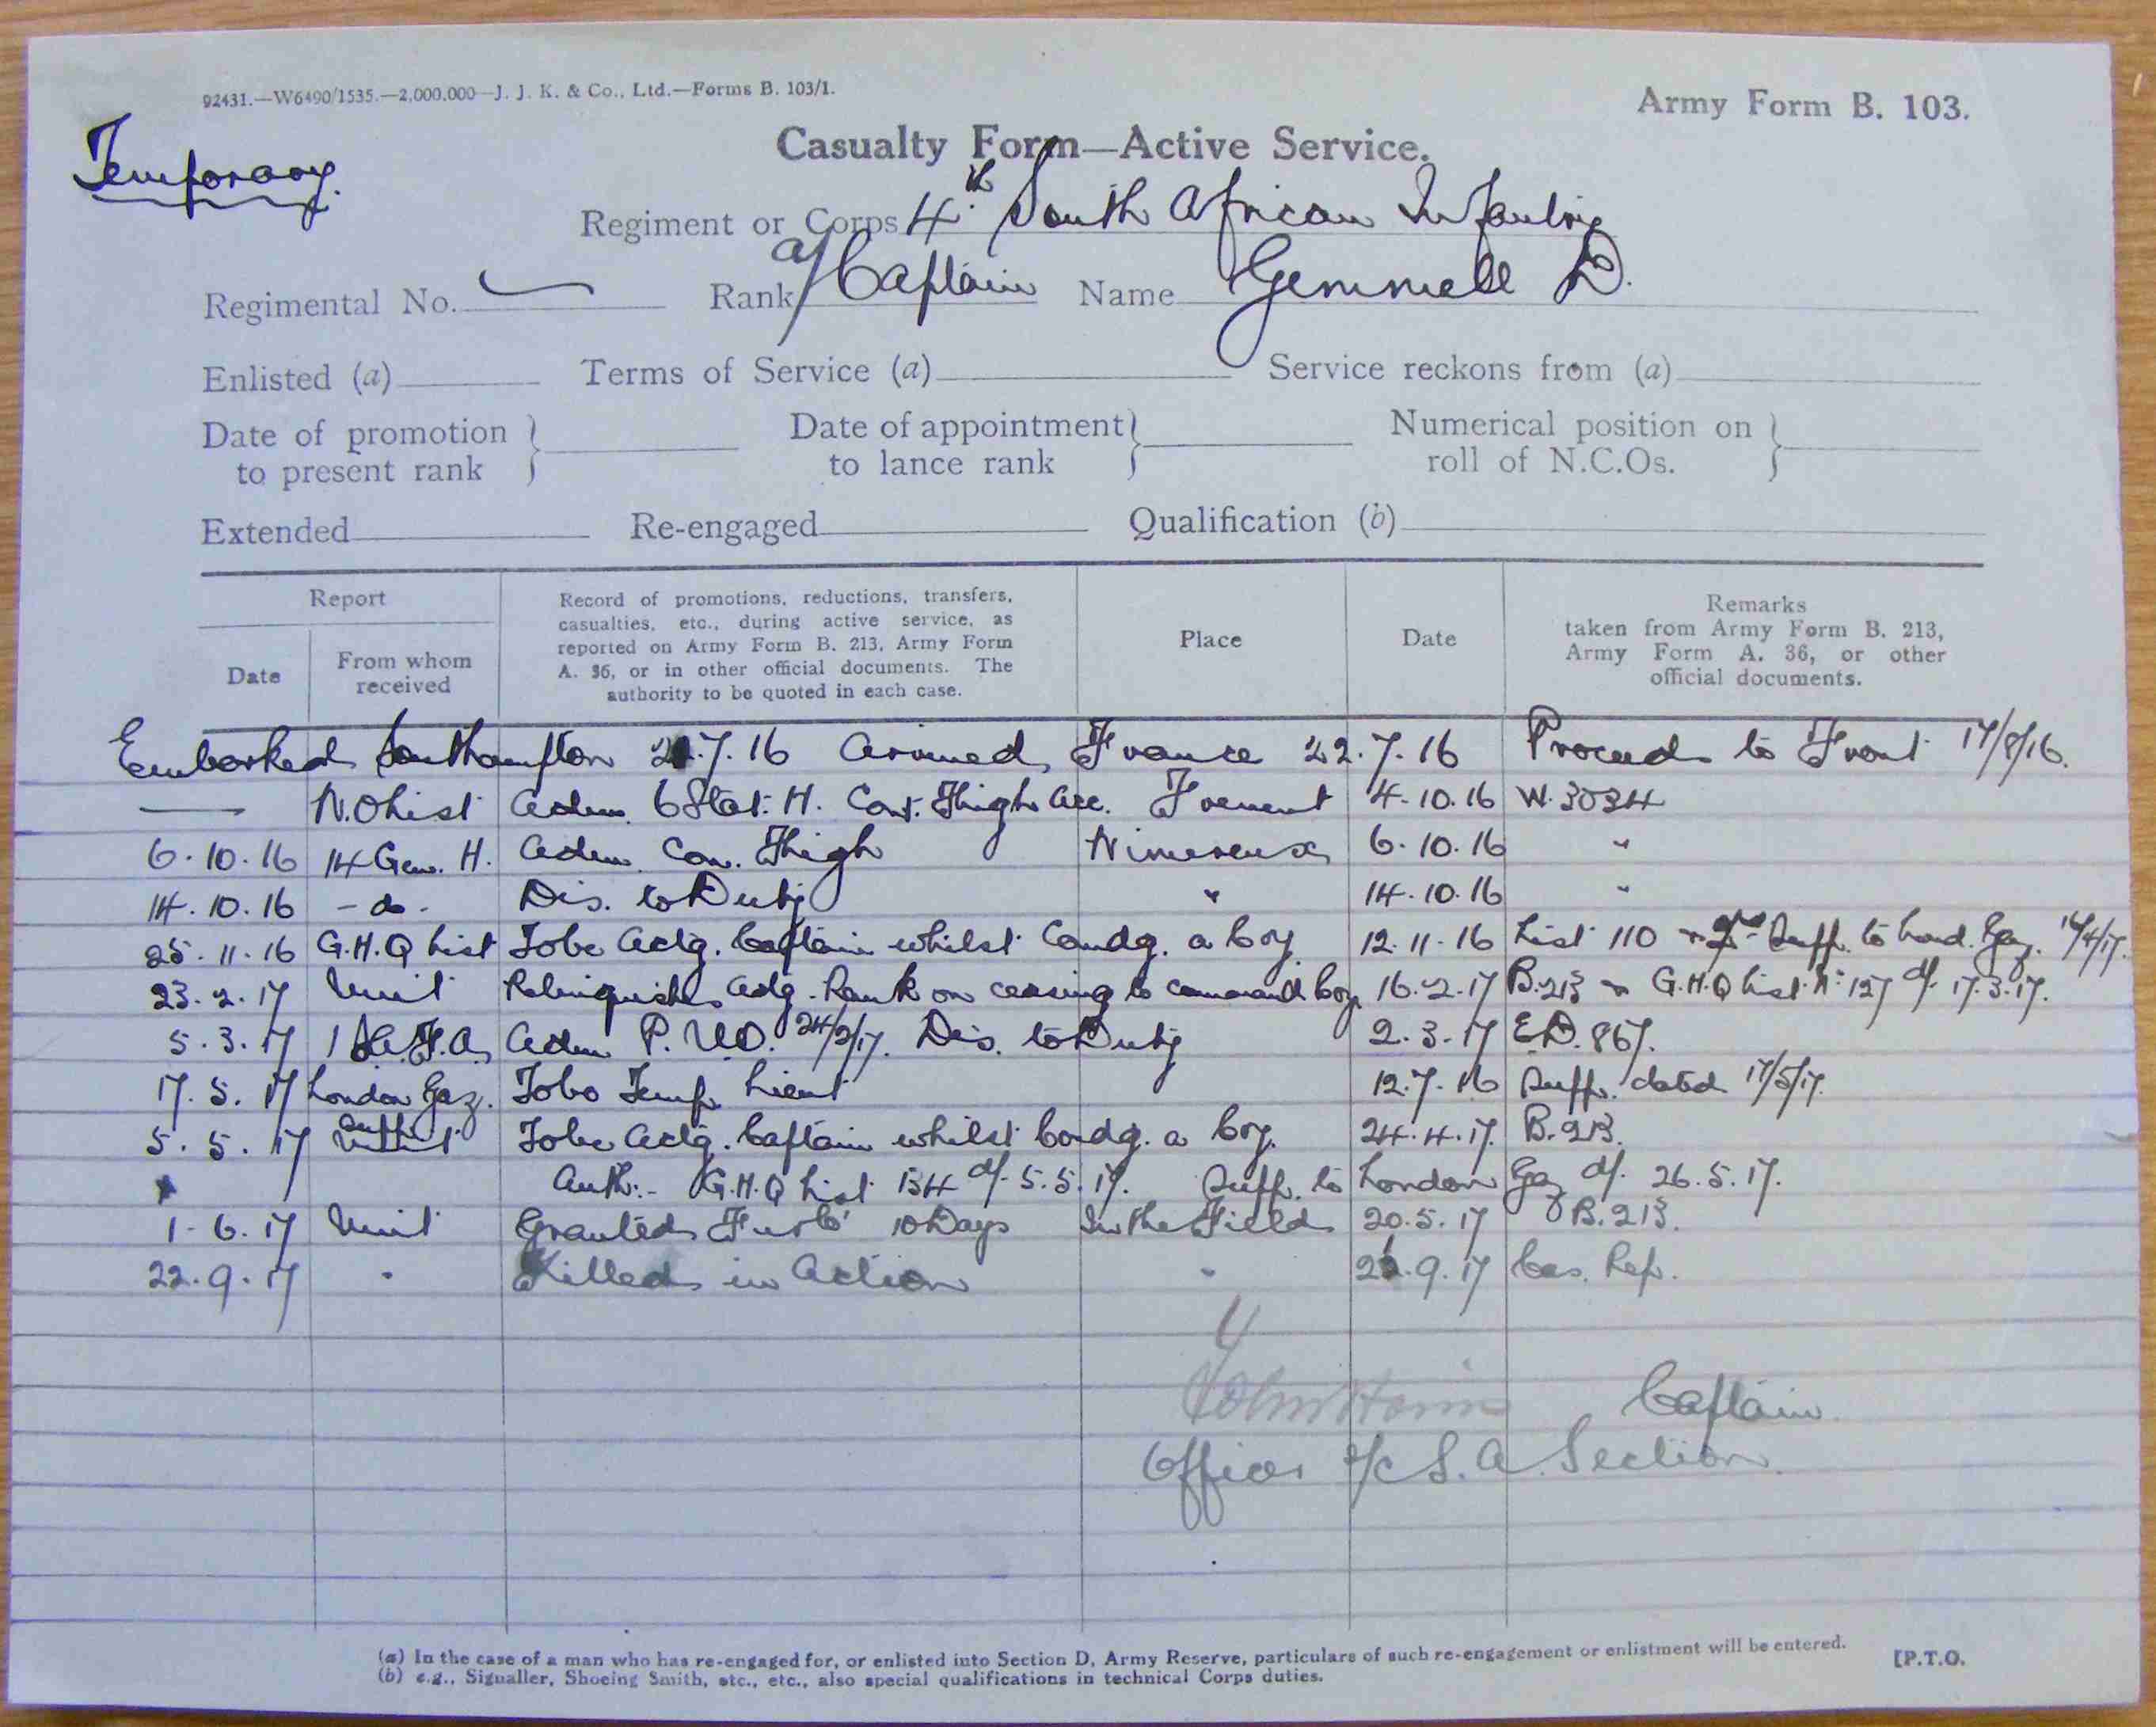 92431.—W6490/1535.—2,000,000—J. J. K. & Co., Ltd.—Forms B. 103/1.
Army Form B. 103.
Temporary
Casualty Form—Active Service.
Regiment or Corps 4th South African Infantry
Regimental No. — Rank a/Captain Name Gemmell D.
Enlisted (a) Terms of Service (a) Service reckons from (a)
Date of promotion to present rank } Date of appointment to lance rank } Numerical position on roll of N.C.Os. }
Extended Re-engaged Qualification (b)
Report
Date
From whom received
Record of promotions, reductions, transfers, casualties, etc., during active service, as reported on Army Form B. 213, Army Form A. 36, or in other official documents. The authority to be quoted in each case.
Place
Date
Remarks taken from Army Form B. 213, Army Form A. 36, or other official documents.
Embarked Southampton .7.16 Arrived France 22.7.16 Proceed to Front 17/8/16.
— N.O List Adm. 6 Stat: H. Con. Thigh Acc. Frevent 4.10.16 W.3034
6.10.16 14 Gen. H. Adm Con. Thigh Wimereux 6.10.16 "
14.10.16 -do- Dis. to Duty " 14.10.16 "
25.11.16 G.H.Q List Tobe Actg. Captain whilst Comdg. a Coy 12.11.16 List 110 Supp. to Lond. Gaz. 16/4/17.
23.2.17 Unit Relinquishes actg. Rank on ceasing to command Coy 16.2.17 B.213 G.H.Q List No 127 d/- 17.3.17.
5.3.17 1 S.A.F.A. Adm P.U.O. 24/2/17. Dis. to Duty 2.3.17 E.D. 867.
17.5.17 London Gaz. Supp. Tobe Temp. Lieut 12.7.16 Supp. dated 17/5/17.
5.5.17 Unit Tobe Actg. Captain whilst Comdg. a Coy. 24.4.17. B.213.
Auth:- G.H.Q List 134 d/- 5.5.17. Supp. to London Gaz d/- 26.5.17.
1.6.17 Unit Granted Furlo' 10 Days In the Field 20.5.17 B.213.
22.9.17 " Killed in Action " .9.17 Cas. Rep.
Captain
Officer i/c S.A. Section.
(a) In the case of a man who has re-engaged for, or enlisted into Section D, Army Reserve, particulars of such re-engagement or enlistment will be entered.
[P.T.O.
(b) e.g., Signaller, Shoeing Smith, etc., etc., also special qualifications in technical Corps duties.